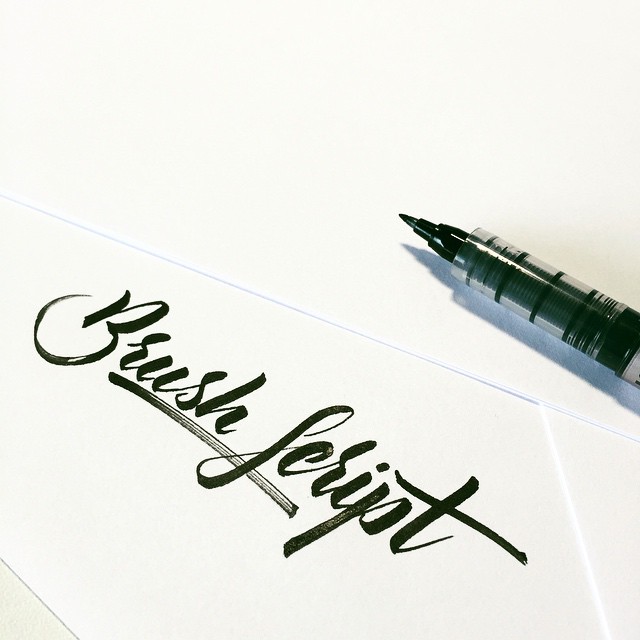 Brush Script